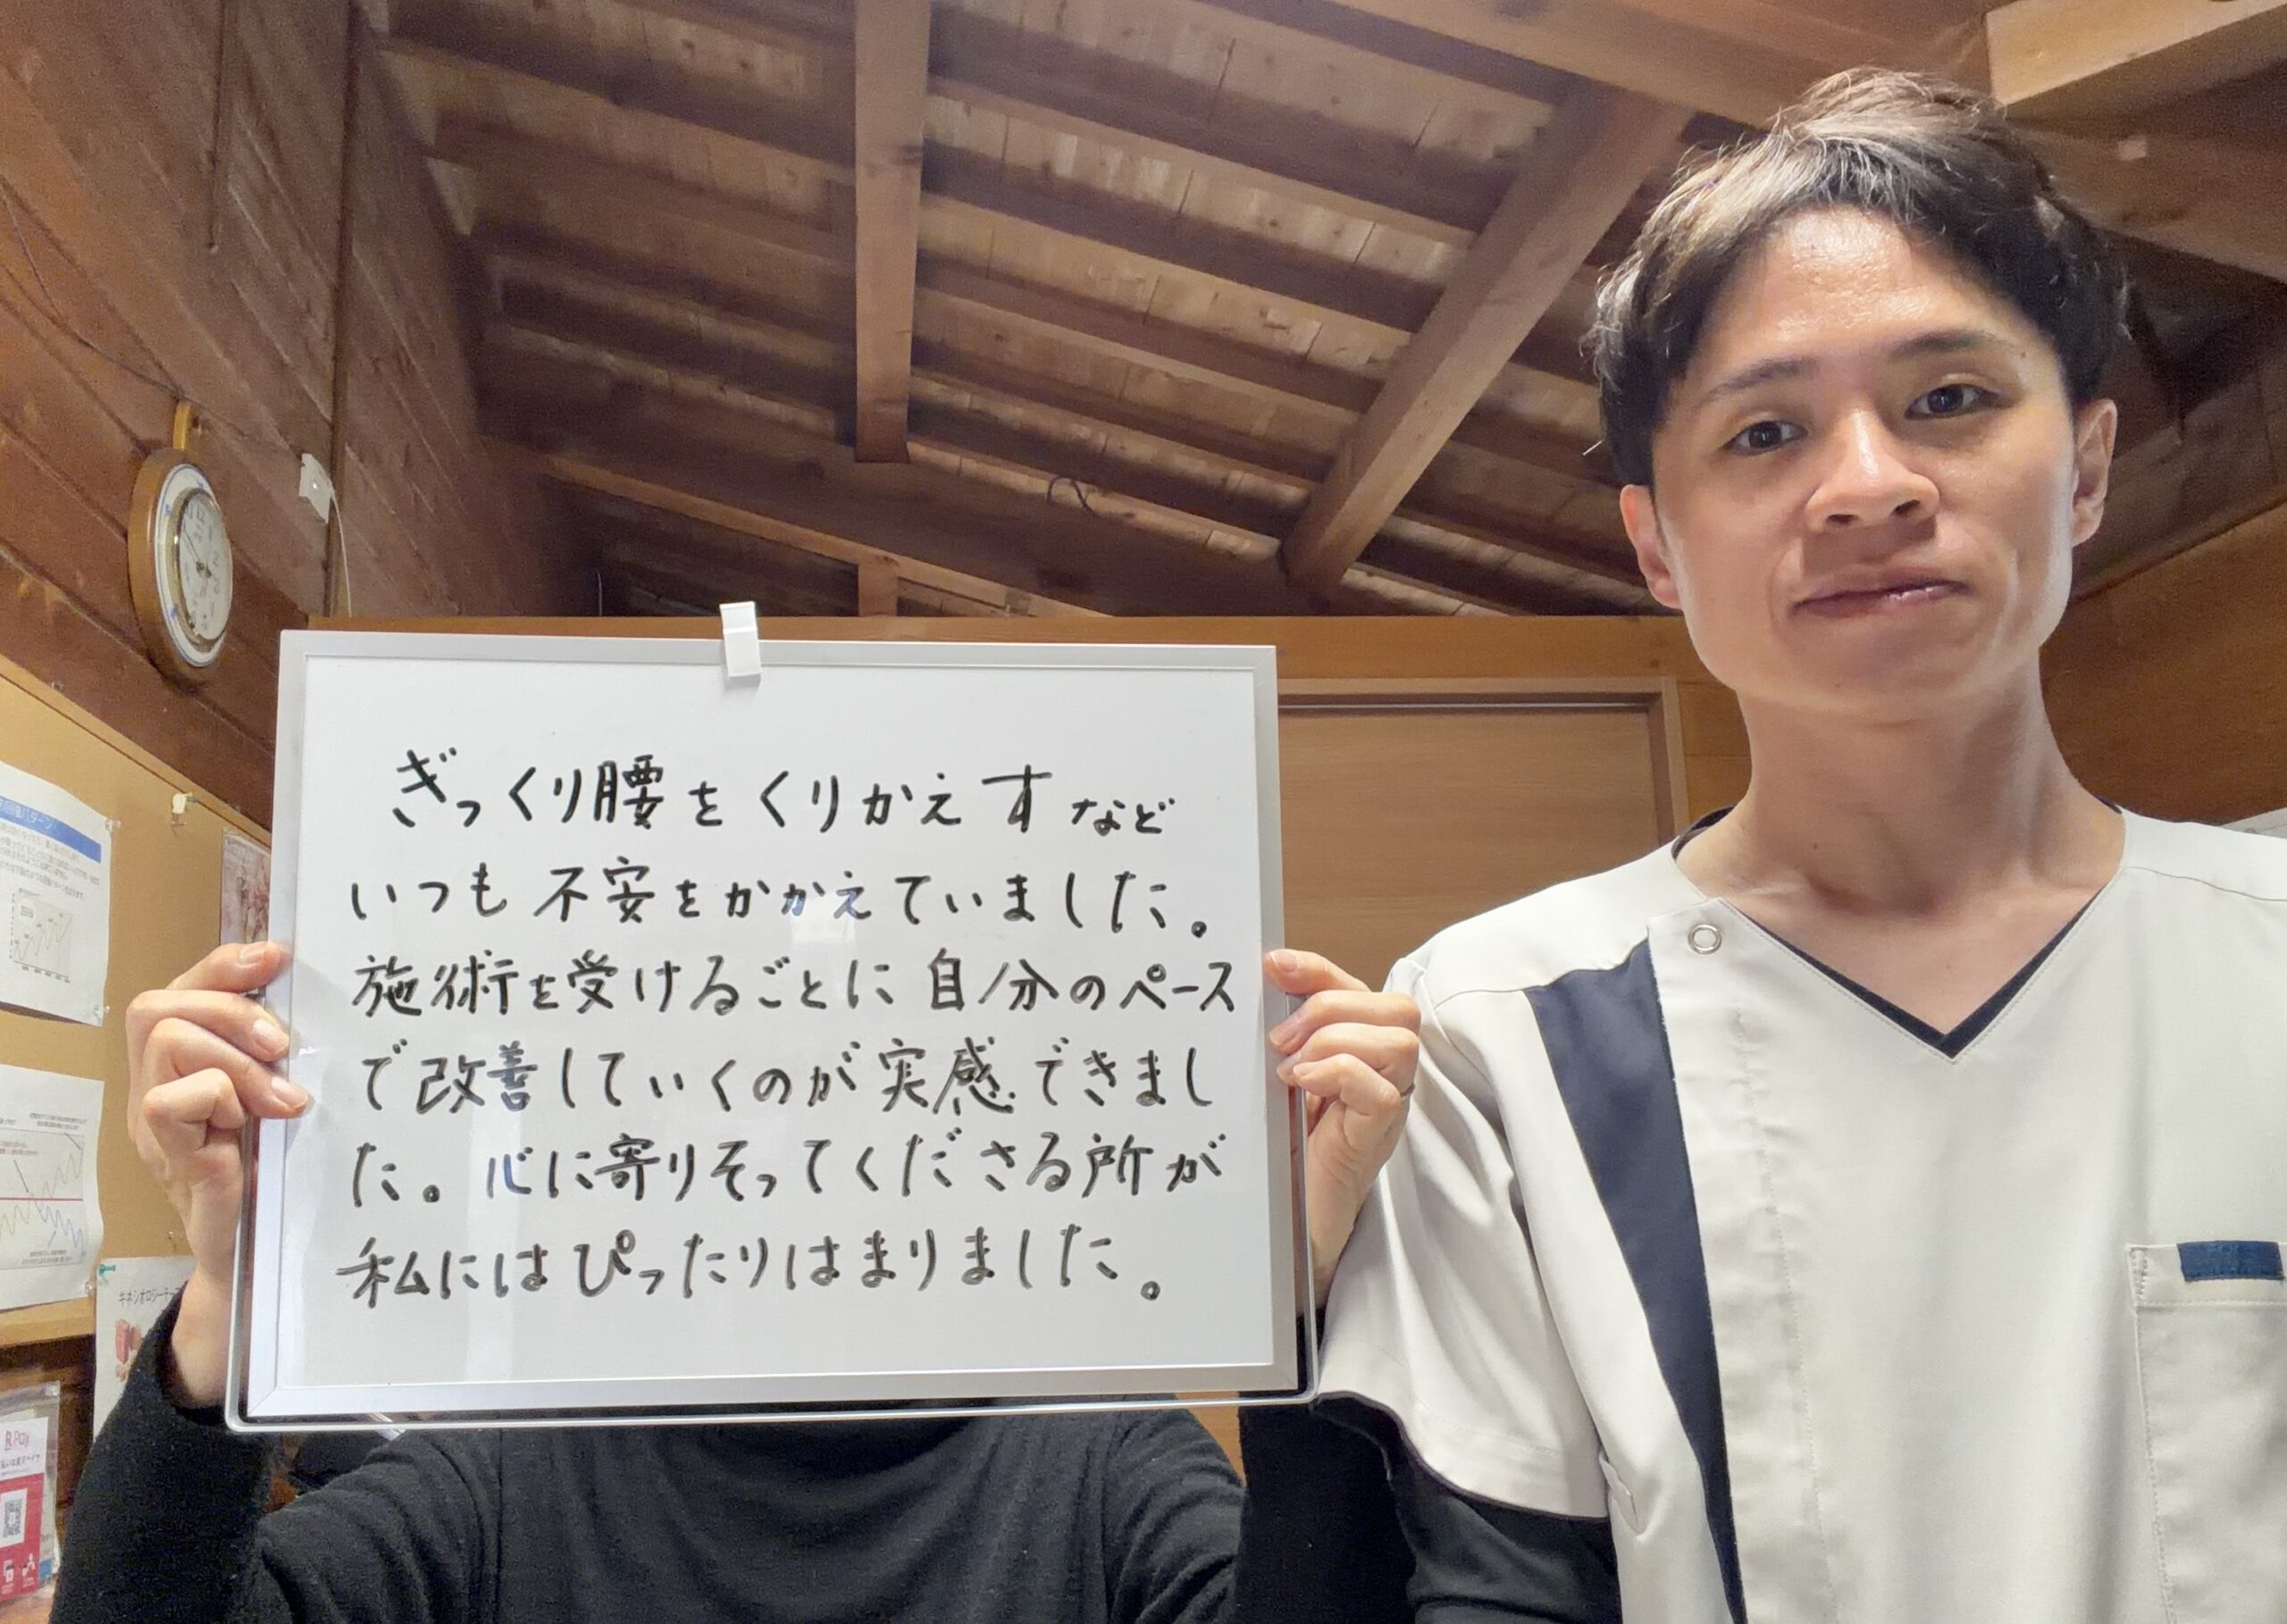 ぎっくり腰をくりかえすなど
いつも不安をかかえていました。
施術を受けるごとに自分のペース
で改善していくのが実感できまし
た。心に寄りそってくださる所が
私にはぴったりはまりました。
キネシオロジーテー
R Pay